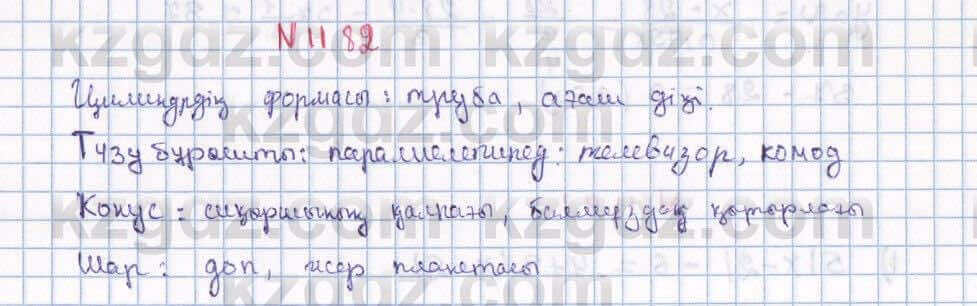 N 1182
Цилиндрдің формасы: труба, ағаш діңі.
Тузу бұрышты: параллелепипед: телевизор, комод
Конус = сиқыршының қалпағы, балмұздақ
Шар: доп, жер планетасы
kzgdz.com